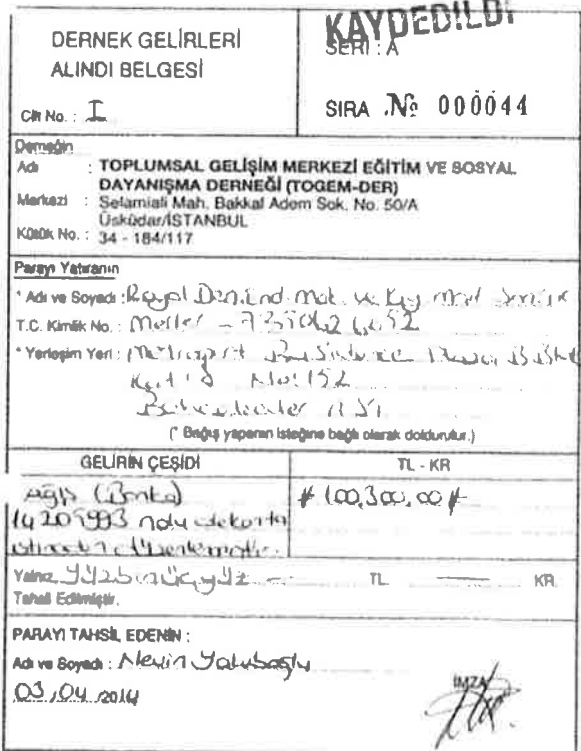 DERNEK GELİRLERİ
ALINDI BELGESİ
KAYDEDİLDİ
SERİ : A
Cilt No. : I
SIRA № 000044
Derneğin
Adı : TOPLUMSAL GELİŞİM MERKEZİ EĞİTİM VE SOSYAL
DAYANIŞMA DERNEĞİ (TOGEM-DER)
Merkezi : Selamiali Mah. Bakkal Adem Sok. No. 50/A
Üsküdar/İSTANBUL
Kütük No. : 34 - 184/117
Parayı Yatıranın
* Adı ve Soyadı : Royal Den. End. mat. ve
T.C. Kimlik No. :
* Yerleşim Yeri :
No: 152
(* Bağış yapanın isteğine bağlı olarak doldurulur.)
GELİRİN ÇEŞİDİ
TL - KR
Bağış (Banka)
# 100,300,00 #
14205993 nolu dekonta
Yalnız Yüzbinüçyüz TL KR.
Tahsil Edilmiştir.
PARAYI TAHSİL EDENİN :
Adı ve Soyadı : Nevin
03.04.2014
İMZA